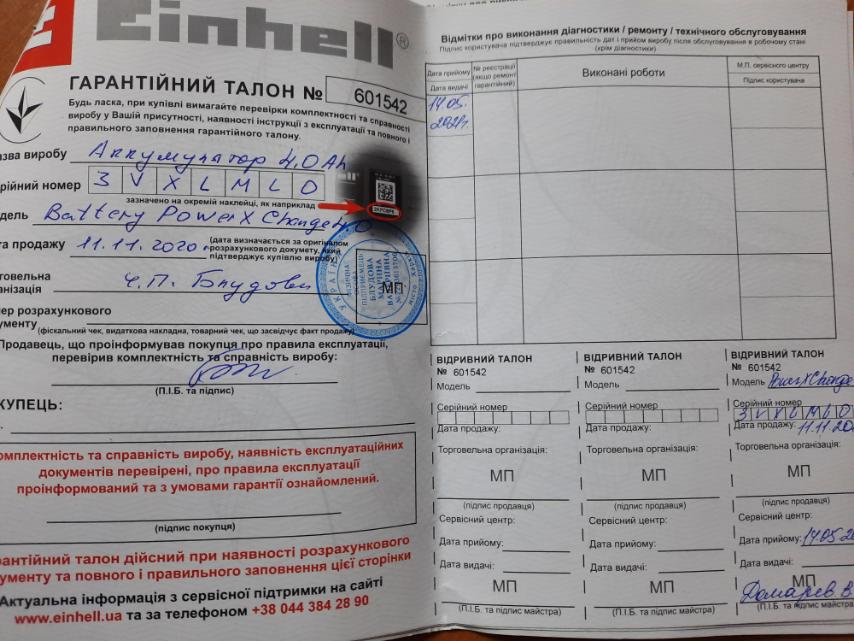 Einhell®
ГАРАНТІЙНИЙ ТАЛОН № 601542
Будь ласка, при купівлі вимагайте перевірки комплектності та справності
виробу у Вашій присутності, наявності інструкції з експлуатації та повного і
правильного заповнення гарантійного талону.
азва виробу Аккумулатор 4,0Ah
рійний номер 3 V X L M L O
зазначено на окремій наклейці, як наприклад
дель Battery PowerXChange 4,0
та продажу 11.11.2020 (дата визначається за оригіналом
розрахункового документу, який
підтверджує купівлю виробу)
рговельна
ганізація Ч.П. Блудова
МП
мер розрахункового
кументу
(фіскальний чек, видаткова накладна, товарний чек, що засвідчує факт продажу)
Продавець, що проінформував покупця про правила експлуатації,
перевірив комплектність та справність виробу:
(П.І.Б. та підпис)
КУПЕЦЬ:
омплектність та справність виробу, наявність експлуатаційних
документів перевірені, про правила експлуатації
проінформований та з умовами гарантії ознайомлений.
(підпис покупця)
рантійний талон дійсний при наявності розрахункового
кументу та повного і правильного заповнення цієї сторінки
Актуальна інформація з сервісної підтримки на сайті
www.einhell.ua та за телефоном +38 044 384 28 90
Відмітки про виконання діагностики / ремонту / технічного обслуговування
Підпис користувача підтверджує правильність дат і прийом виробу після обслуговування в робочому стані
(крім діагностики)
Дата прийому
Дата видачі
№ реєстрації
(якщо ремонт
гарантійний)
Виконані роботи
М.П. сервісного центру
Підпис користувача
14.05.
2021г.
ВІДРИВНИЙ ТАЛОН
№ 601542
Модель
Серійний номер
Дата продажу:
Торговельна організація:
МП
(підпис продавця)
Сервісний центр:
Дата прийому:
Дата видачі:
МП
(П.І.Б. та підпис майстра)
ВІДРИВНИЙ ТАЛОН
№ 601542
Модель
Серійний номер
Дата продажу:
Торговельна організація:
МП
(підпис продавця)
Сервісний центр:
Дата прийому:
Дата видачі:
МП
(П.І.Б. та підпис майстра)
ВІДРИВНИЙ ТАЛОН
№ 601542
Модель PowerXChange
Серійний номер
3 V X L M L O
Дата продажу: 11.11.20
Торговельна організація:
МП
(підпис продавця)
Сервісний центр:
Дата прийому: 14.05.20
Дата видачі:
МП
(П.І.Б. та підпис майстра)